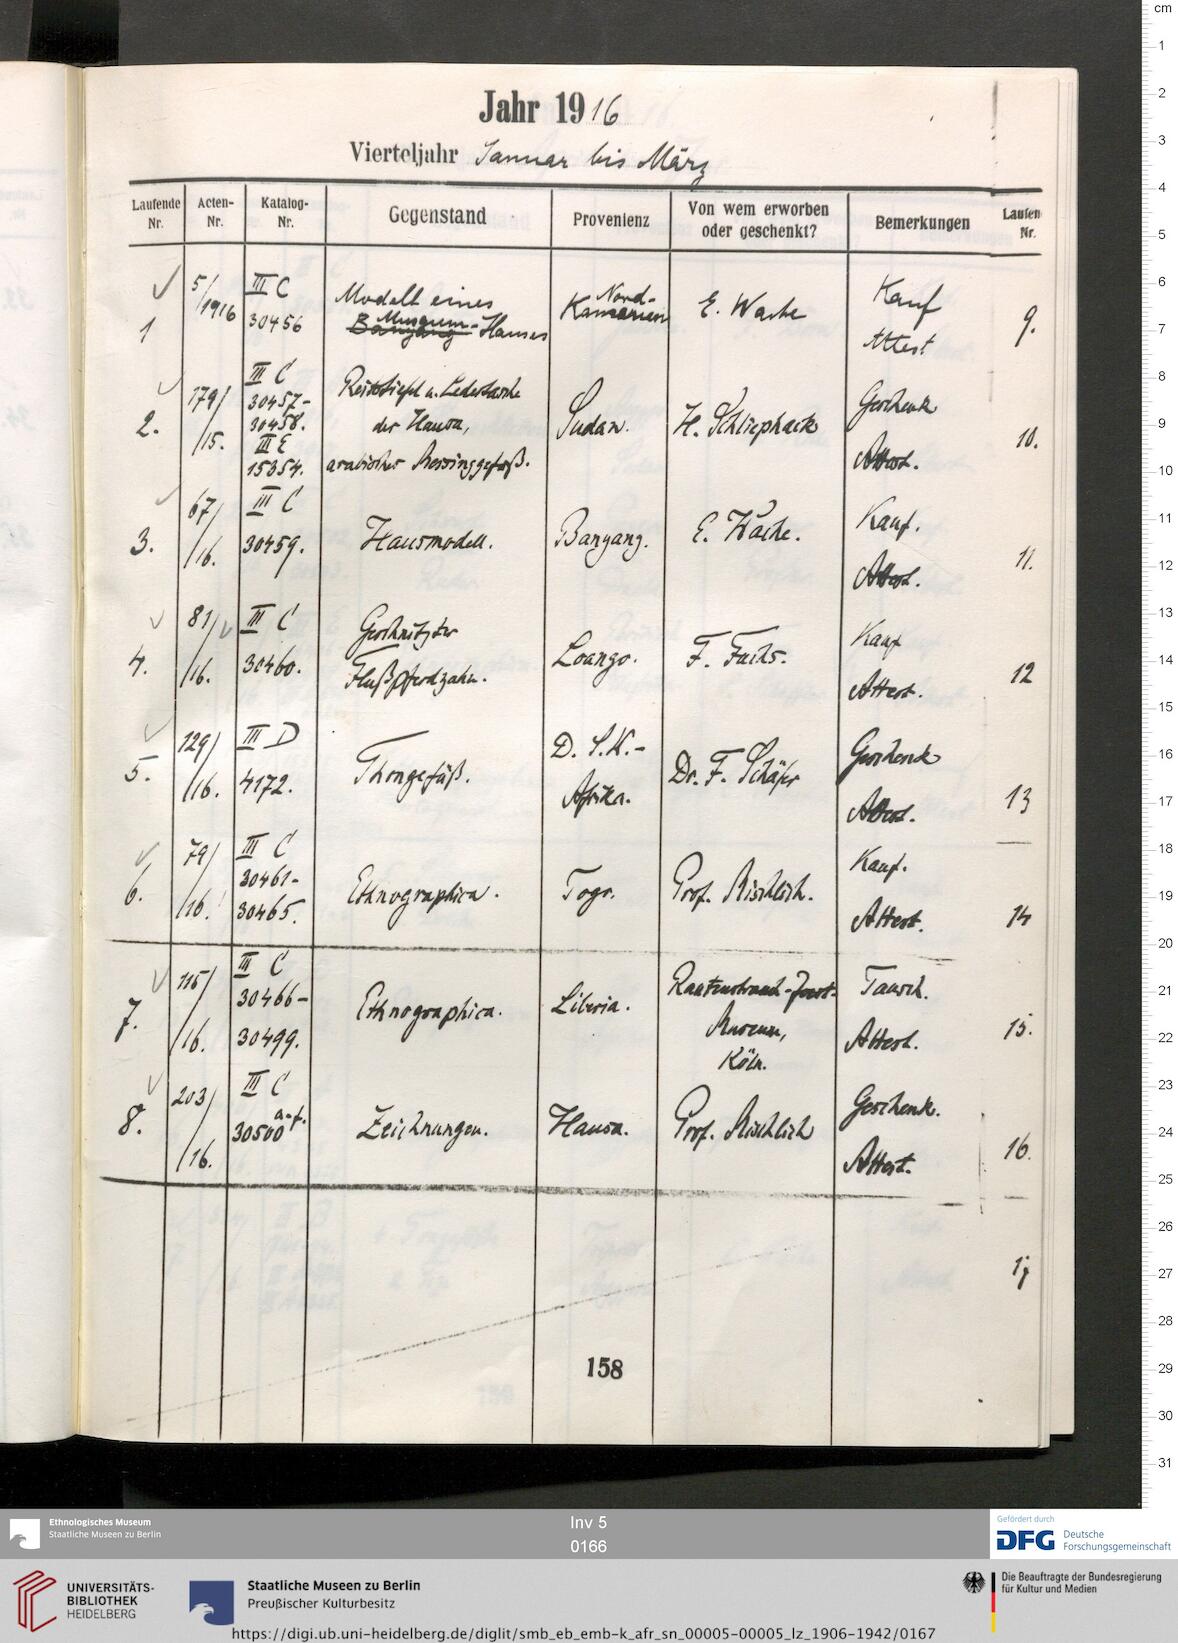 Jahr 1916
Vierteljahr Januar bis März
Laufende Nr.
Acten-Nr.
Katalog-Nr.
Gegenstand
Provenienz
Von wem erworben oder geschenkt?
Bemerkungen
Laufen
Nr.
1
5/1916
III C
30456
Modell eines
Banyang Museum-Hauses
Nord-
Kamerun
E. Wache
Kauf
Attest
9.
2.
179/15.
III C
30457-
30458.
III E
15354.
Reitstiefel u. Ledertasche
der Hausa,
arabisches Messinggefäß.
Sudan.
H. Schliephack
Geschenk
Attest.
10.
3.
67/16.
III C
30459.
Hausmodell.
Banyang.
E. Wache.
Kauf.
Attest.
11.
4.
81/16.
III C
30460.
Geschnitzter
Flußpferdzahn.
Loango.
F. Fuchs.
Kauf
Attest.
12
5.
129/16.
III D
4172.
Thongefäß.
D. S.W.-
Afrika.
Dr. F. Schäfer
Geschenk
Attest.
13
6.
79/16.
III C
30461-
30465.
Ethnographica.
Togo.
Prof. Mischlich.
Kauf.
Attest.
14
7.
115/16.
III C
30466-
30499.
Ethnographica.
Liberia.
Rautenstrauch-Joest-
Museum,
Köln.
Tausch.
Attest.
15.
8.
203/16.
III C
30500 a-f.
Zeichnungen.
Hausa.
Prof. Mischlich
Geschenk.
Attest.
16.
17
158
cm
1
2
3
4
5
6
7
8
9
10
11
12
13
14
15
16
17
18
19
20
21
22
23
24
25
26
27
28
29
30
31
Ethnologisches Museum
Staatliche Museen zu Berlin
Inv 5
0166
Gefördert durch
DFG Deutsche
Forschungsgemeinschaft
UNIVERSITÄTS-
BIBLIOTHEK
HEIDELBERG
Staatliche Museen zu Berlin
Preußischer Kulturbesitz
Die Beauftragte der Bundesregierung
für Kultur und Medien
https://digi.ub.uni-heidelberg.de/diglit/smb_eb_emb-k_afr_sn_00005-00005_lz_1906-1942/0167